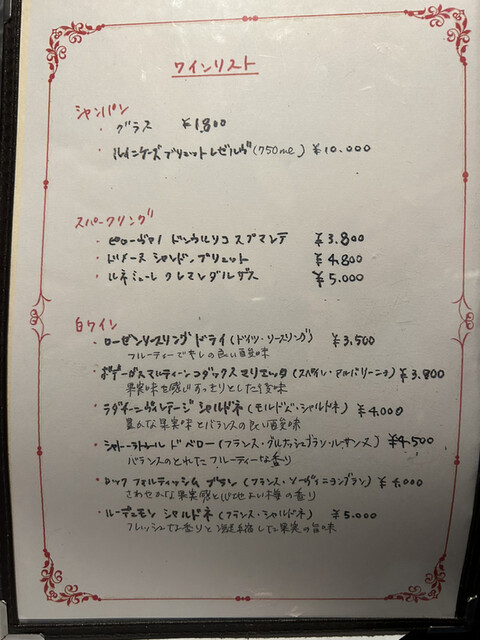 ワインリスト
シャンパン
・グラス ¥1,800
・ルインケーズブリュットレゼルヴ(750ml) ¥10.000
スパークリング
・ピローヴァノ ドンウルリコ スプマンテ ¥3.800
・ドメーヌ シャンドン ブリュット ¥4,800
・ルネミューレ クレマンダルザス ¥5.000
白ワイン
・ローゼンリースリング ドライ(ドイツ・リースリング) ¥3,500
フルーティーでキレの良い酸味
・ボデーガスマルティーンコダックスマリエッタ(スペイン・アルバリーニョ) ¥3.800
果実味を感じすっきりとした後味
・ラダチーニヴィンテージ シャルドネ(モルドバ・シャルドネ) ¥4,000
豊んな果実味とバランスの良い酸味
・シャトーラトレル ド ベロー(フランス・グルナッシュブラン・ルーサンヌ) ¥4,500
バランスのとれたフルーティーな香り
・ロック フォルティッシム ブラン(フランス・ソーヴィニヨンブラン) ¥4,000
さわやかな果実感と心地よい樽の香り
・ルーデュモン シャルドネ(フランス・シャルドネ) ¥5.000
フレッシュな香りと凝縮した果実の旨味